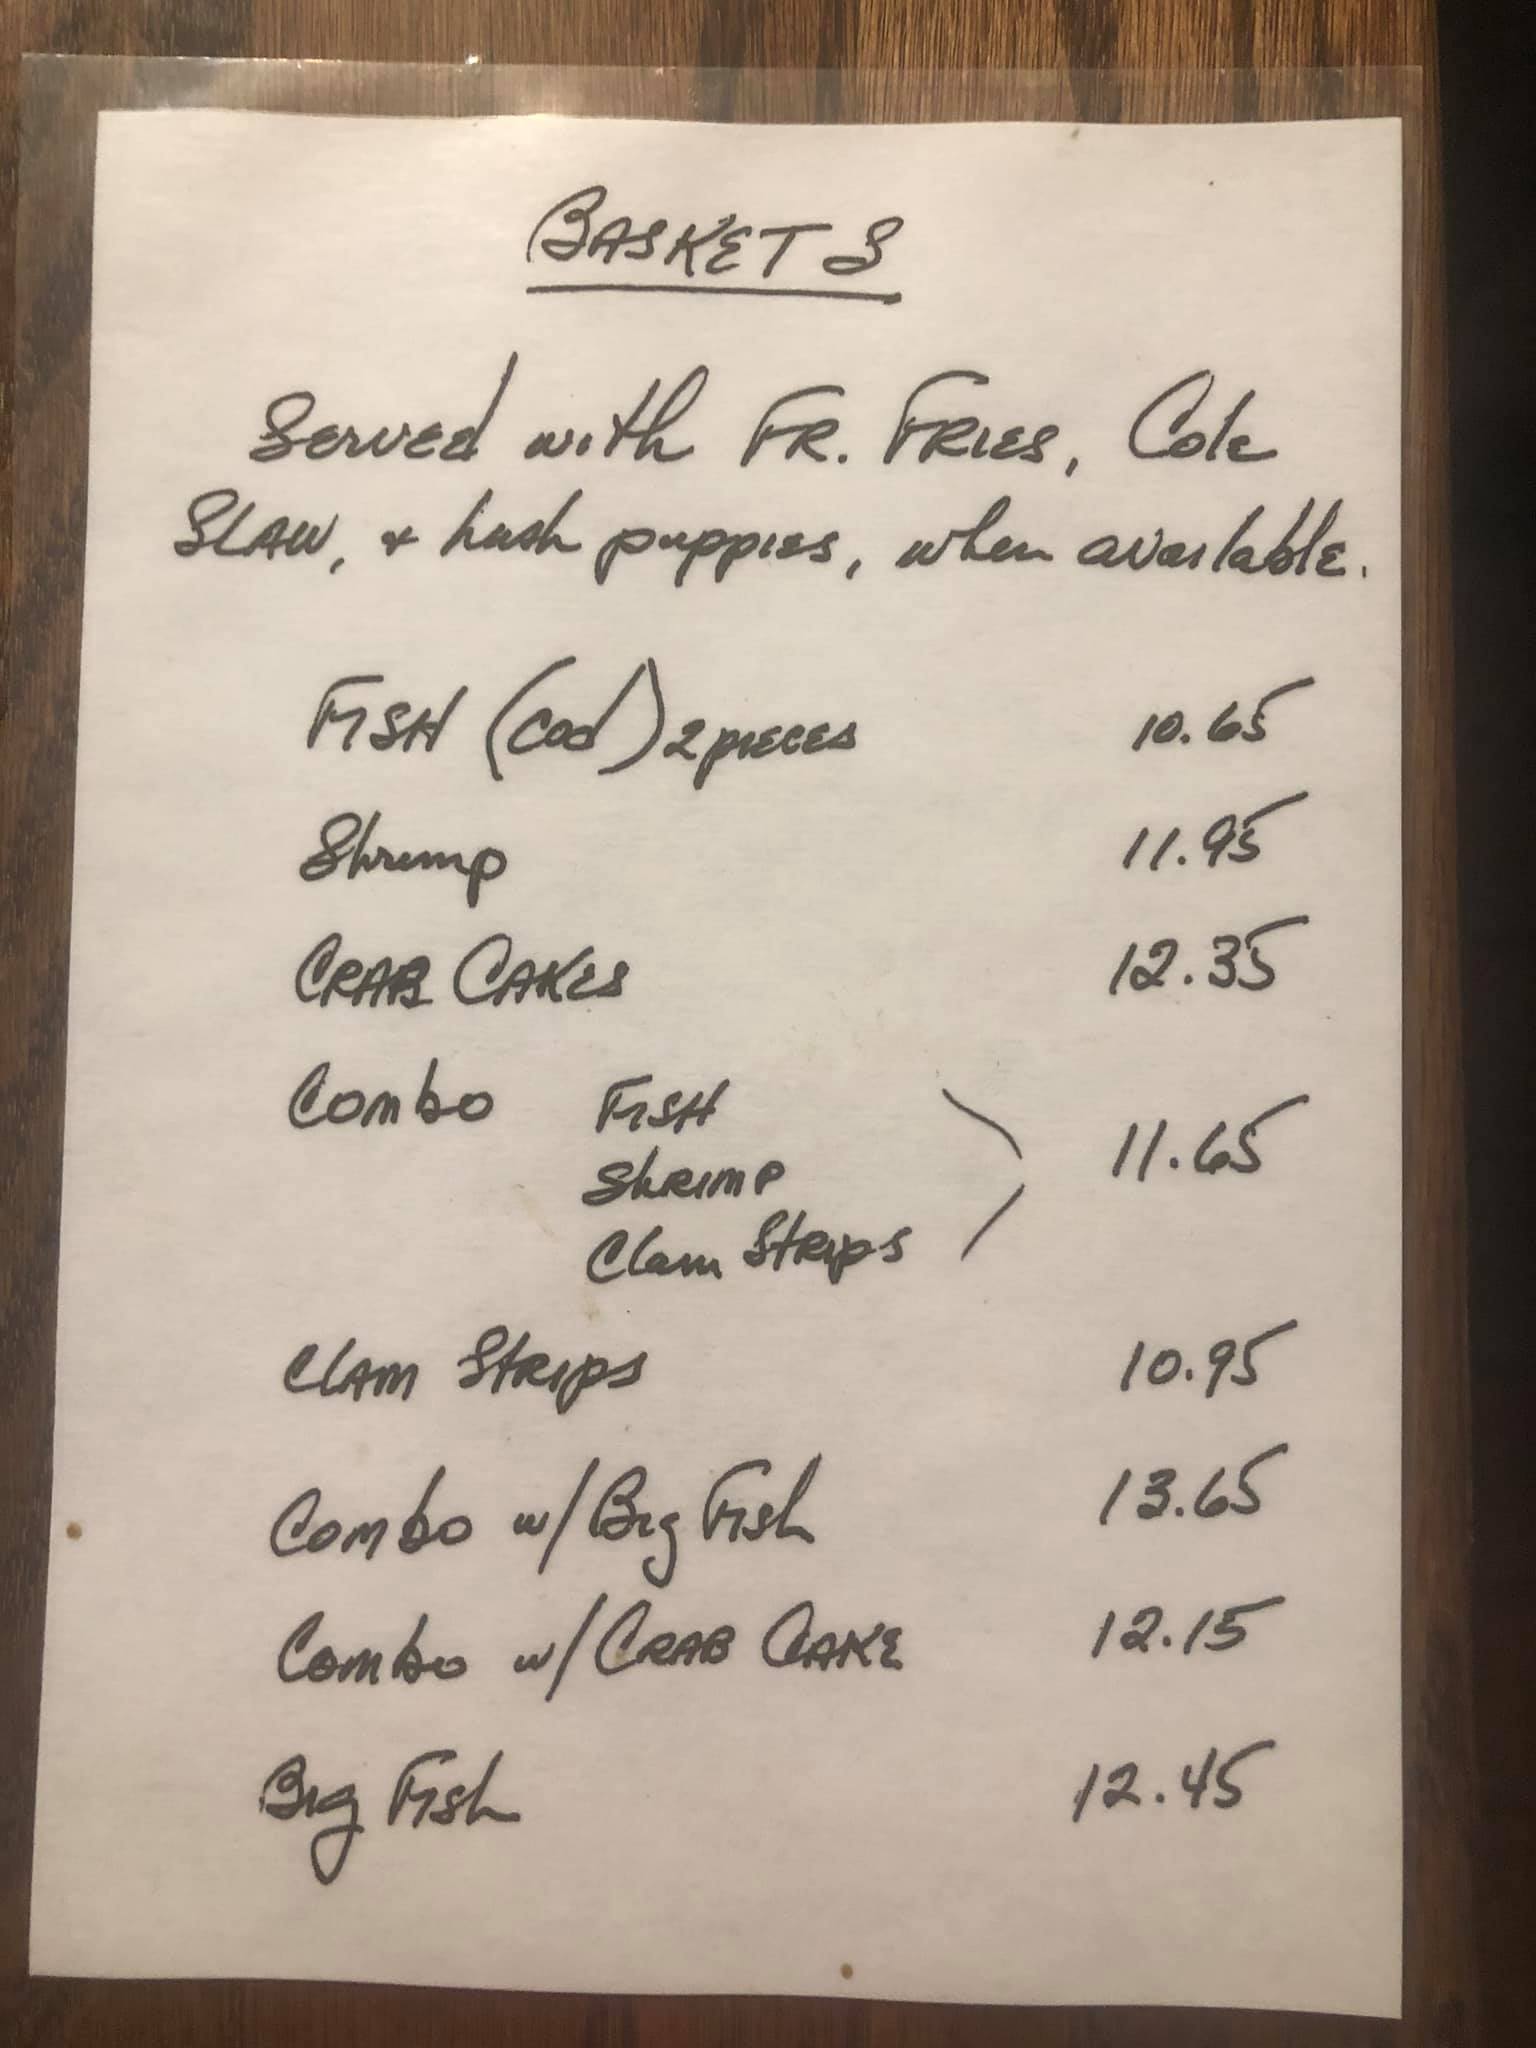 BASKETS
Served with FR. FRIES, Cole
SLAW, & hush puppies, when available.
FISH (Cod) 2 pieces 10.65
Shrimp 11.95
CRAB CAKES 12.35
Combo FISH
Shrimp 11.65
Clam Strips
Clam Strips 10.95
Combo w/ Big Fish 13.65
Combo w/ CRAB CAKE 12.15
Big Fish 12.45